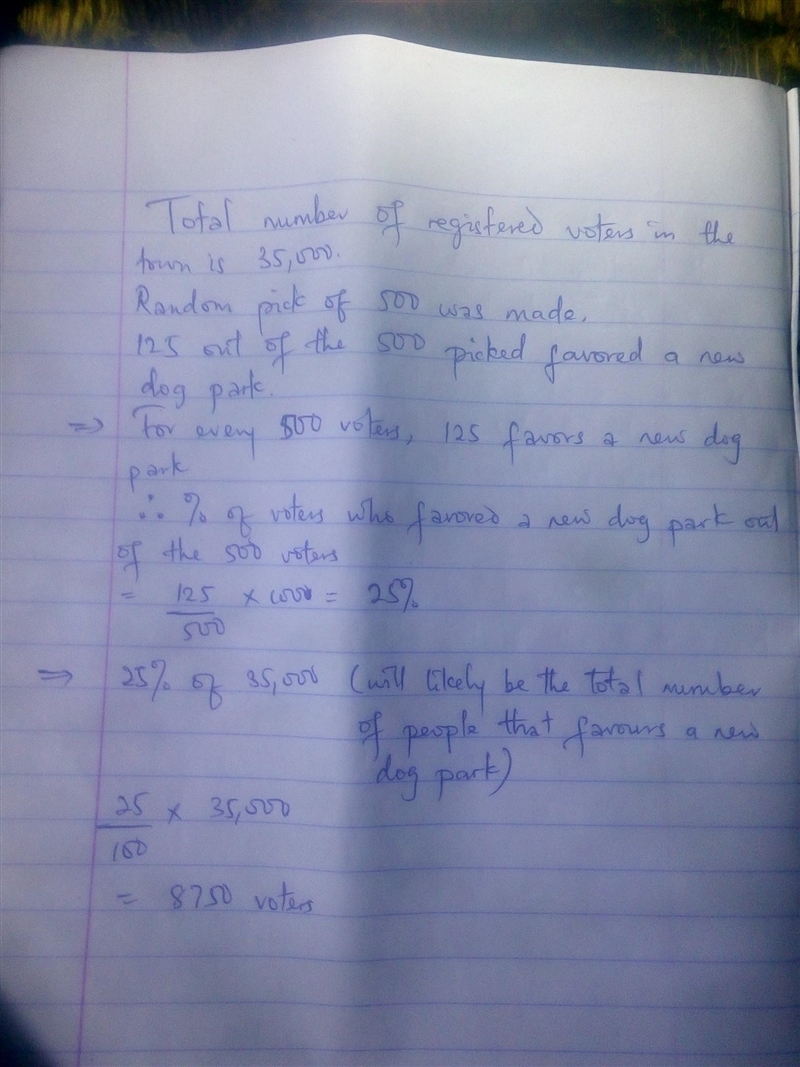 Total number of registered voters in the
town is 35,000.
Random pick of 500 was made.
125 out of the 500 picked favored a new
dog park.
⇒ For every 500 voters, 125 favors a new dog
park
∴ % of voters who favored a new dog park out
of the 500 voters
= 125/500 × 100% = 25%
⇒ 25% of 35,000 (will likely be the total number
of people that favours a new
dog park)
25/100 × 35,000
= 8750 voters